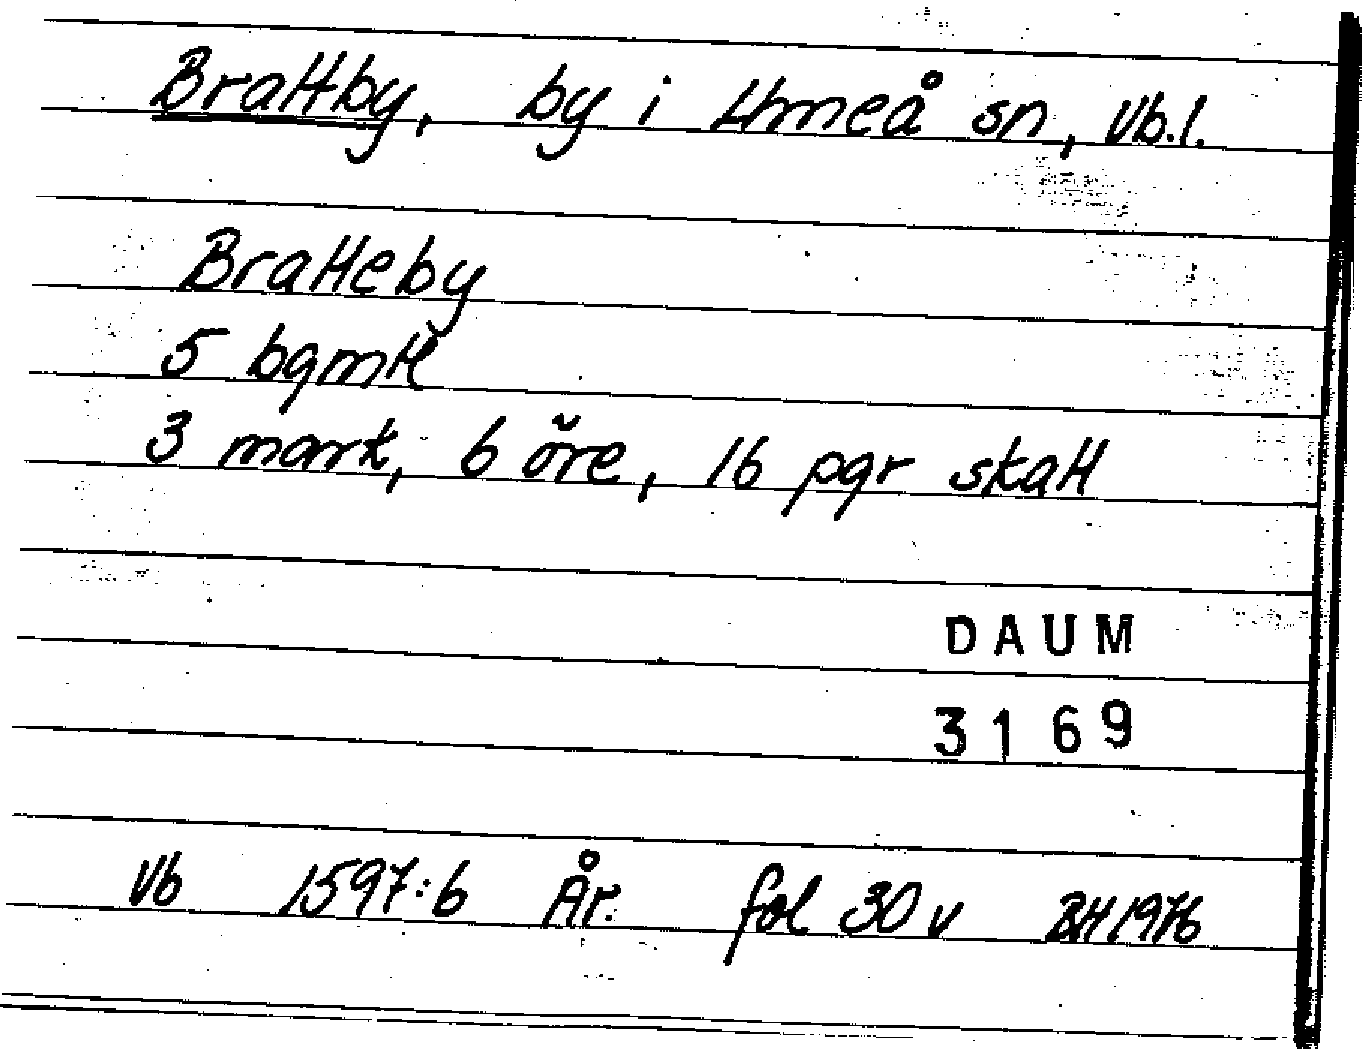 Brattby, by i Umeå sn, Vb.l.
Bratteby
5 bgmtl
3 mark, 6 öre, 16 pgr skatt
DAUM
3169
Vb 1597:6 År. fol 30 v BH 1976